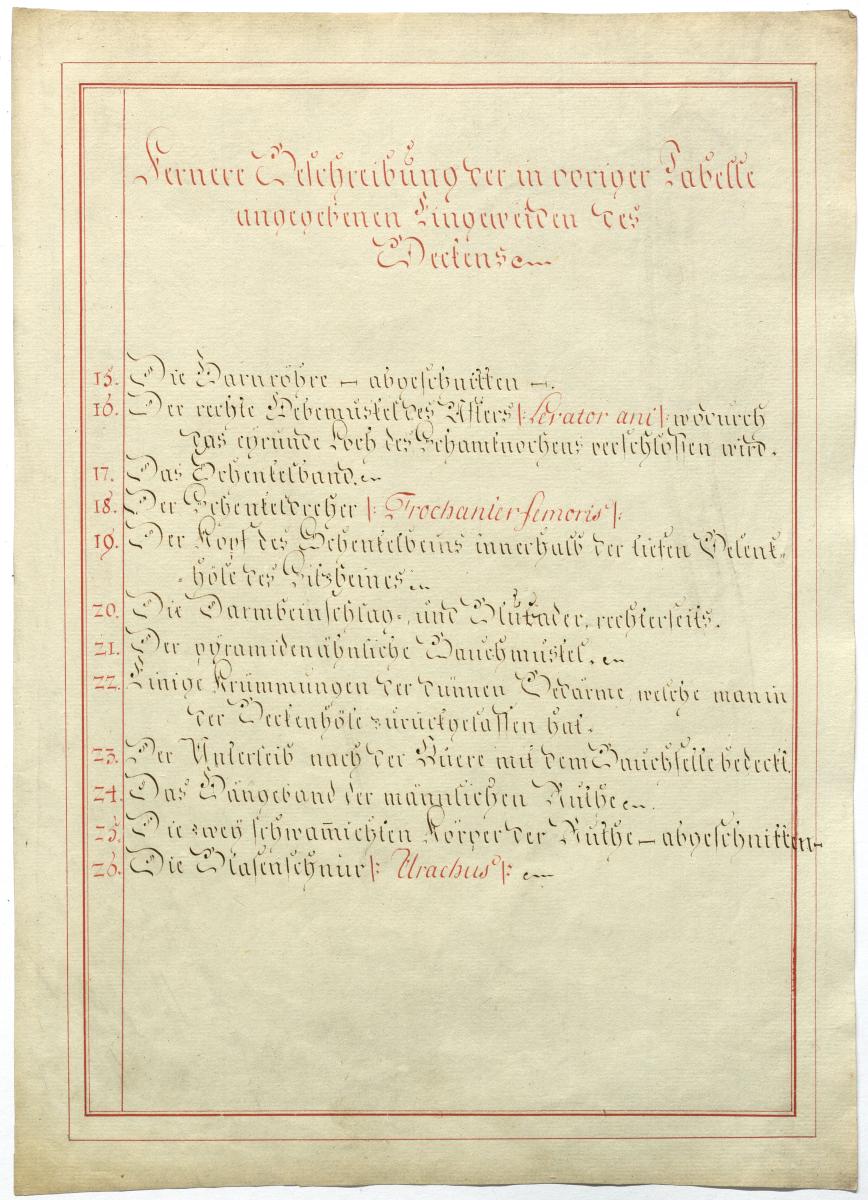 Fernere Beschreibung der in voriger Tabelle
angegebenen Eingeweiden des
Beckens
15. Die Harnröhre – abgeschnitten –.
16. Der rechte Hebemuskel des Afters |: Levator ani :| wodurch
das eyrunde Loch des Schamknochens verschlossen wird.
17. Das Schenkelband.
18. Der Schenkeldreher |: Trochanter femoris :|
19. Der Kopf des Schenkelbeins innerhalb der tiefen Gelenk-
-höle des Sitzbeines.
20. Die Darmbeinschlag-, und Blutader, rechterseits.
21. Der pyramidenähnliche Bauchmuskel.
22. Einige Krümmungen der dünnen Gedärme, welche man in
der Beckenhöle zurückgelassen hat.
23. Der Unterleib nach der Quere mit dem Bauchfelle bedeckt.
24. Das Hängeband der männlichen Ruthe.
25. Die zwey schwam̄ichten Körper der Ruthe – abgeschnitten –
26. Die Blasenschnur |: Urachus :|